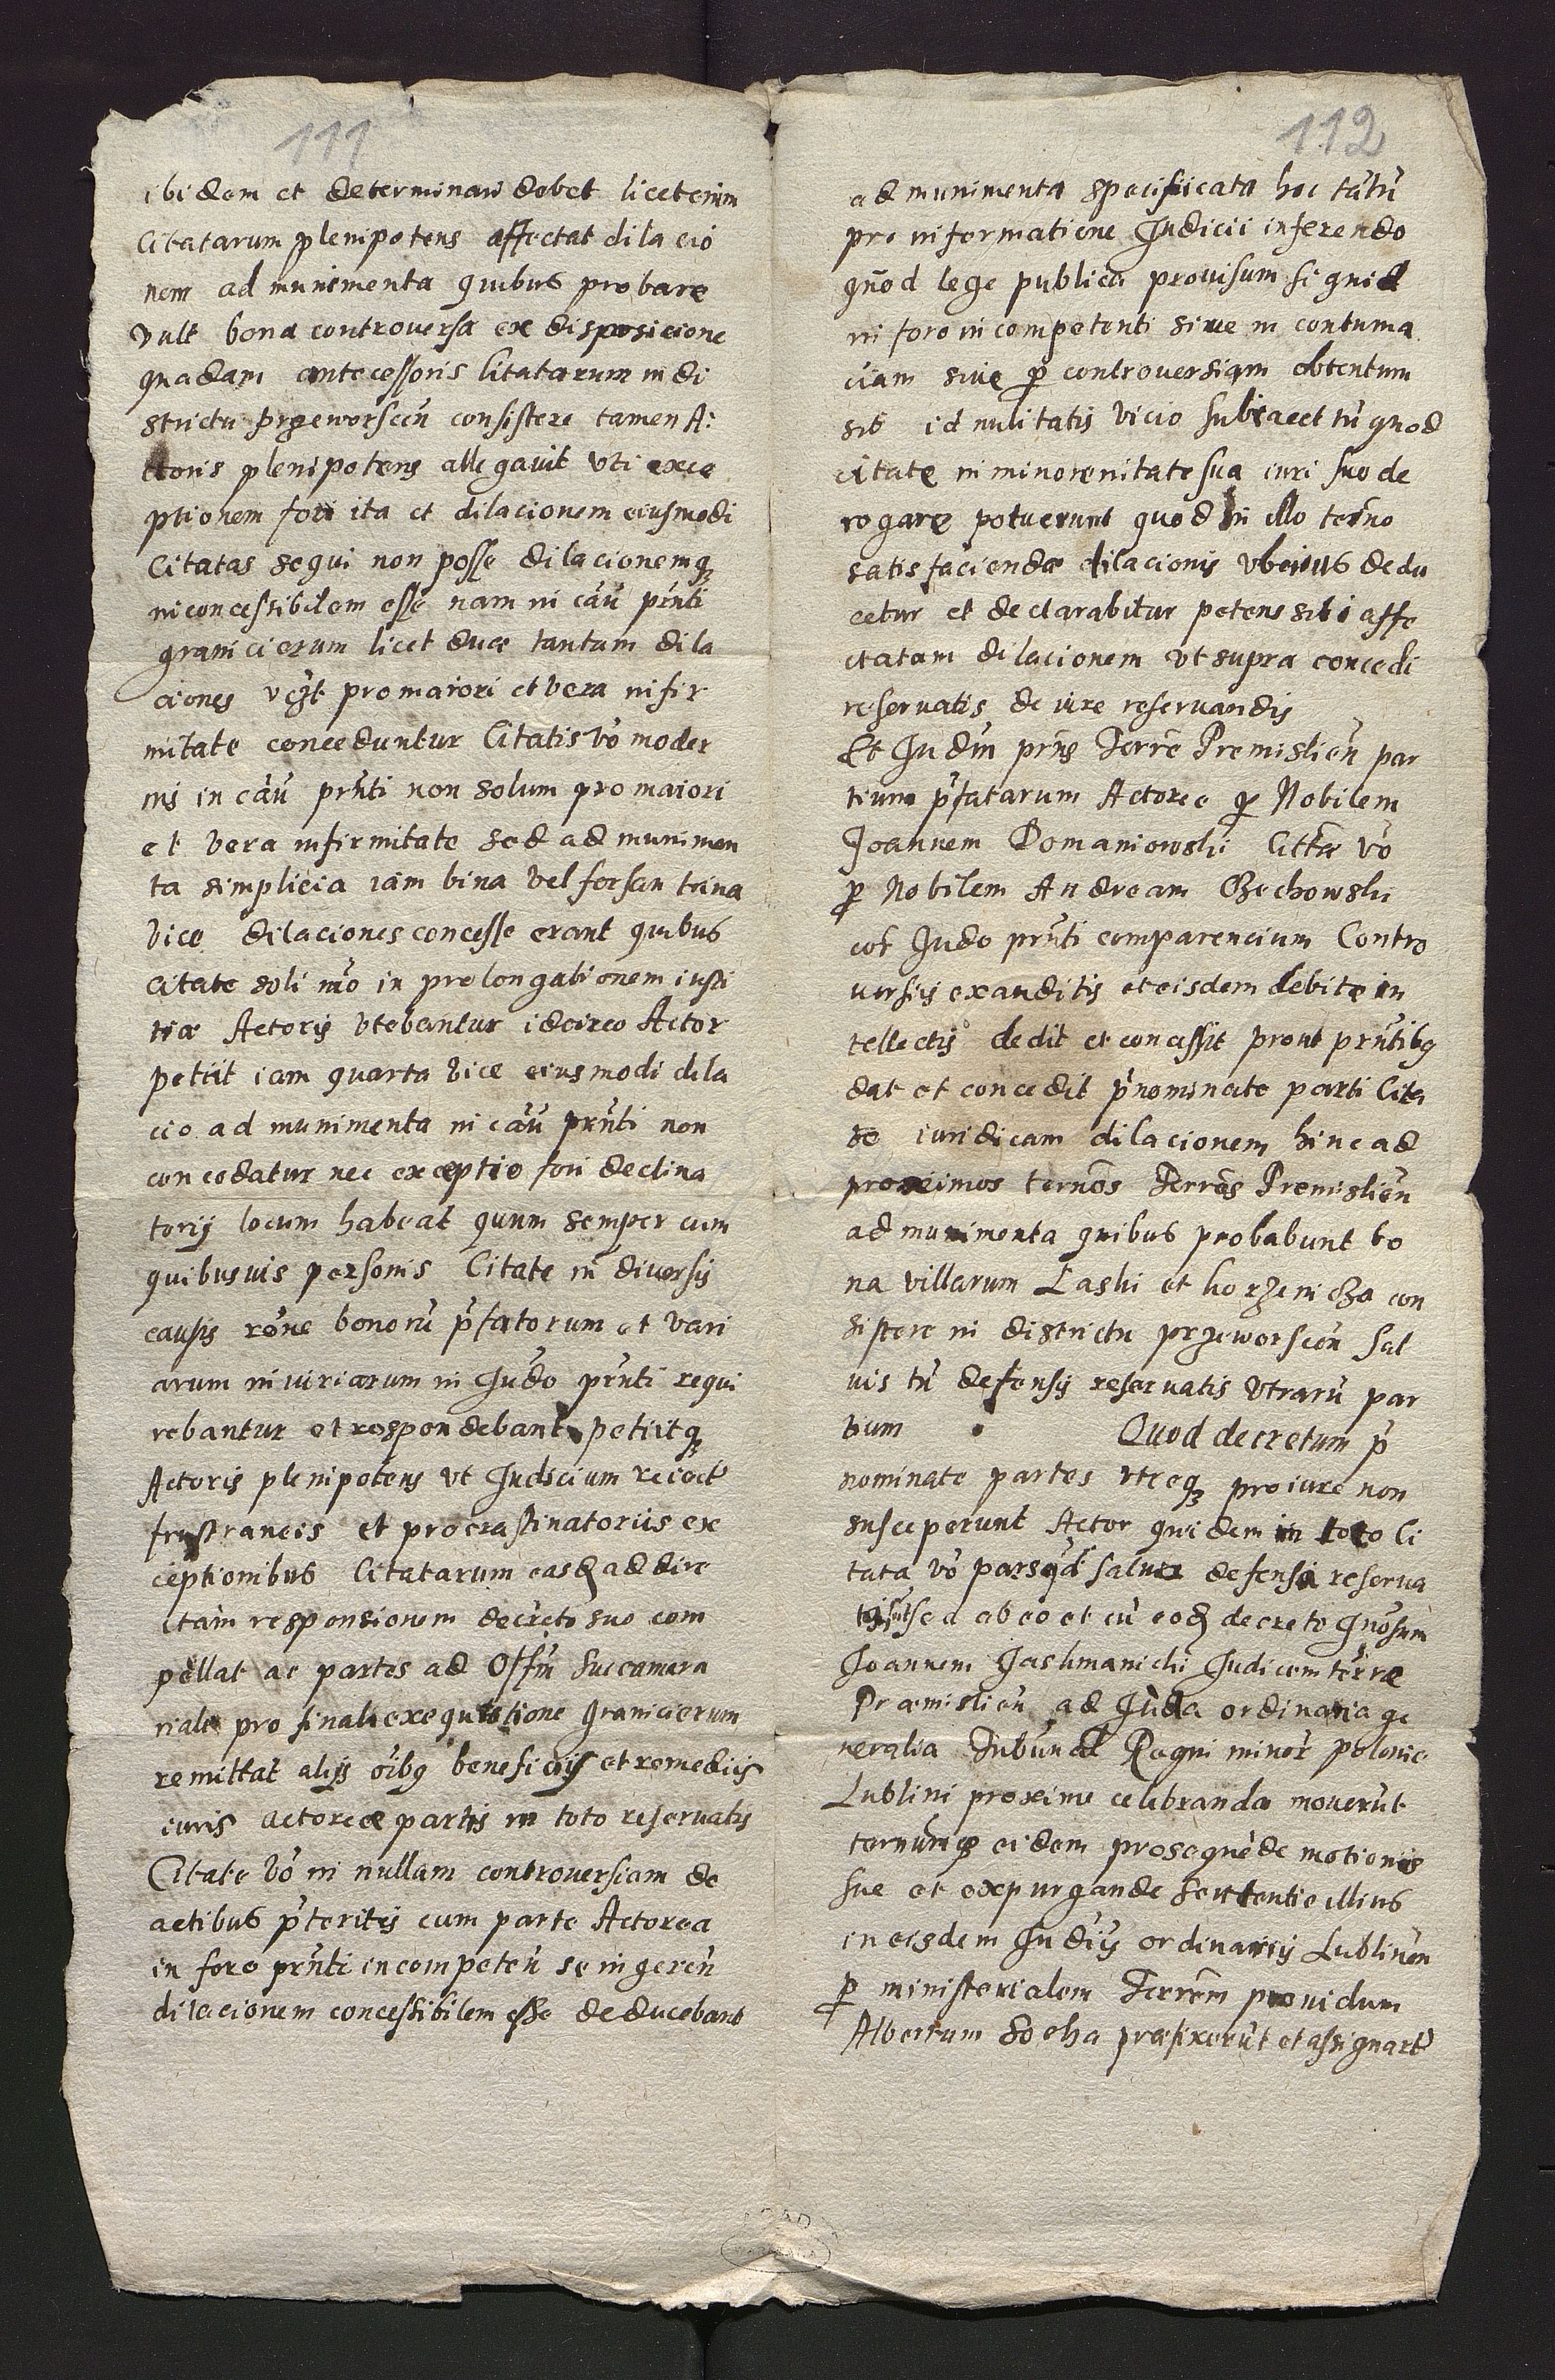 111
ibidem et determinari debet licet enim
Citatarum plenipotens affectat dilacio
nem ad munimenta quibus probare
vult bona controversa ex disposicione
quadam antecessoris Citatarum in di
strictu przeworscen̄ consistere tamen A:
ctoris plenipotens allegavit vti exce
ptionem fori ita et dilacionem eiusmodi
Citatas sequi non posse dilacionemq₃
inconcessibilem esse nam in cāu prn̄ti
graniciorum licet duæ tantum dila
ciones vc̄zt pro maiori et vera infir
mitate conceduntur Citatis vō moder
nis in cāu prn̄ti non solum pro maiori
et vera infirmitate sed ad munimen
ta simplicia iam bina vel forsan trina
vice dilaciones concesse erant quibus
Citate soli m̄o in prolongationem iusti
tiæ Actoris vtebantur idcirco Actor
petiit iam quarta vice eiusmodi dila
cio ad munimenta in cāu prn̄ti non
concedatur nec exceptio fori declina
torij locum habeat quum semper cum
quibusuis personis Citate in diuersis
causis rōne bonorū p̄fatorum et vari
arum iniuriarum in Jud̄o prn̄ti requi
rebantur et respondebant petiitq₃
Actoris plenipotens vt Judicium reiect̄
frustraneis et procrastinatoriis ex
ceptionibus Citatarum easd̄ ad dire
ctam responsionem decreto suo com
pellat ac partes ad Offm̄ Succamera
riale pro finali exequutione Graniciorum
remittat alijs oībq beneficijs et remediis
iuris actoreæ partis in toto reservatis
Citate vō in nullam controversiam de
actibus p̄teritis cum parte Actorea
in foro prn̄ti incompeten̄ se ingeren̄
dilacionem concessibilem esse deducebant
112
ad munimenta specificata hoc tātū
pro informatione Judicii inferendo
quod lege publica provisum si quid
in foro incompetenti sive in contuma
ciam sive p̱ controversiam obtentum
sit id nulitatis vicio subiacet tū quod
citate in minorenitate sua iuri suo de
rogare potuerunt quod in illo ter̄no
satisfaciendæ dilacionis vberius dedu
cetur et declarabitur petens sibi affe
ctatam dilacionem vt supra concedi
reservatis de iure reservandis
Et Judm̄ prn̄s Terrē Premislien̄ par
tium p̄fatarum Actoree p̱ Nobilem
Joannem Domaniowski Citt̄æ vō
p̱ Nobilem Andream Czechowski
cor̄ Jud̄o prn̄ti comparencium Contro
versiis exauditis et eisdem debite in
tellectis dedit et concessit prout prn̄tibq
dat et concedit p̄nominate parti Cita
te iuridicam dilacionem hinc ad
proximos ternōs Terrēs Premislien̄
ad munimenta quibus probabunt bo
na villarum Laski et korzenicza con
sistere in districtu przeworscen̄ sal
vis tū defensis reservatis vtrarū par
tium Quod decretum p̄
nominate partes vtreq₃ pro iure non
susceperunt Actor quidem in toto Ci
tata vō pars salva defensa reserva
sed ab eo et cū eod̄ decreto Gn̄osum
Joannem Jaskmanicki Judicem terræ
Præmislien̄ ad Jud̄a ordinaria ge
neralia Tribunal̄ Regni minor̄ polonie
Lublini proxime celebranda moverūt
ternumq₃ eidem prosequēde motionis
sue et expurgande sententie illius
in eisdem Judiīs ordinariis Lublinen̄
p̱ ministerialem Terrēm providum
Albertum Socha præfixerūt et assignart̄